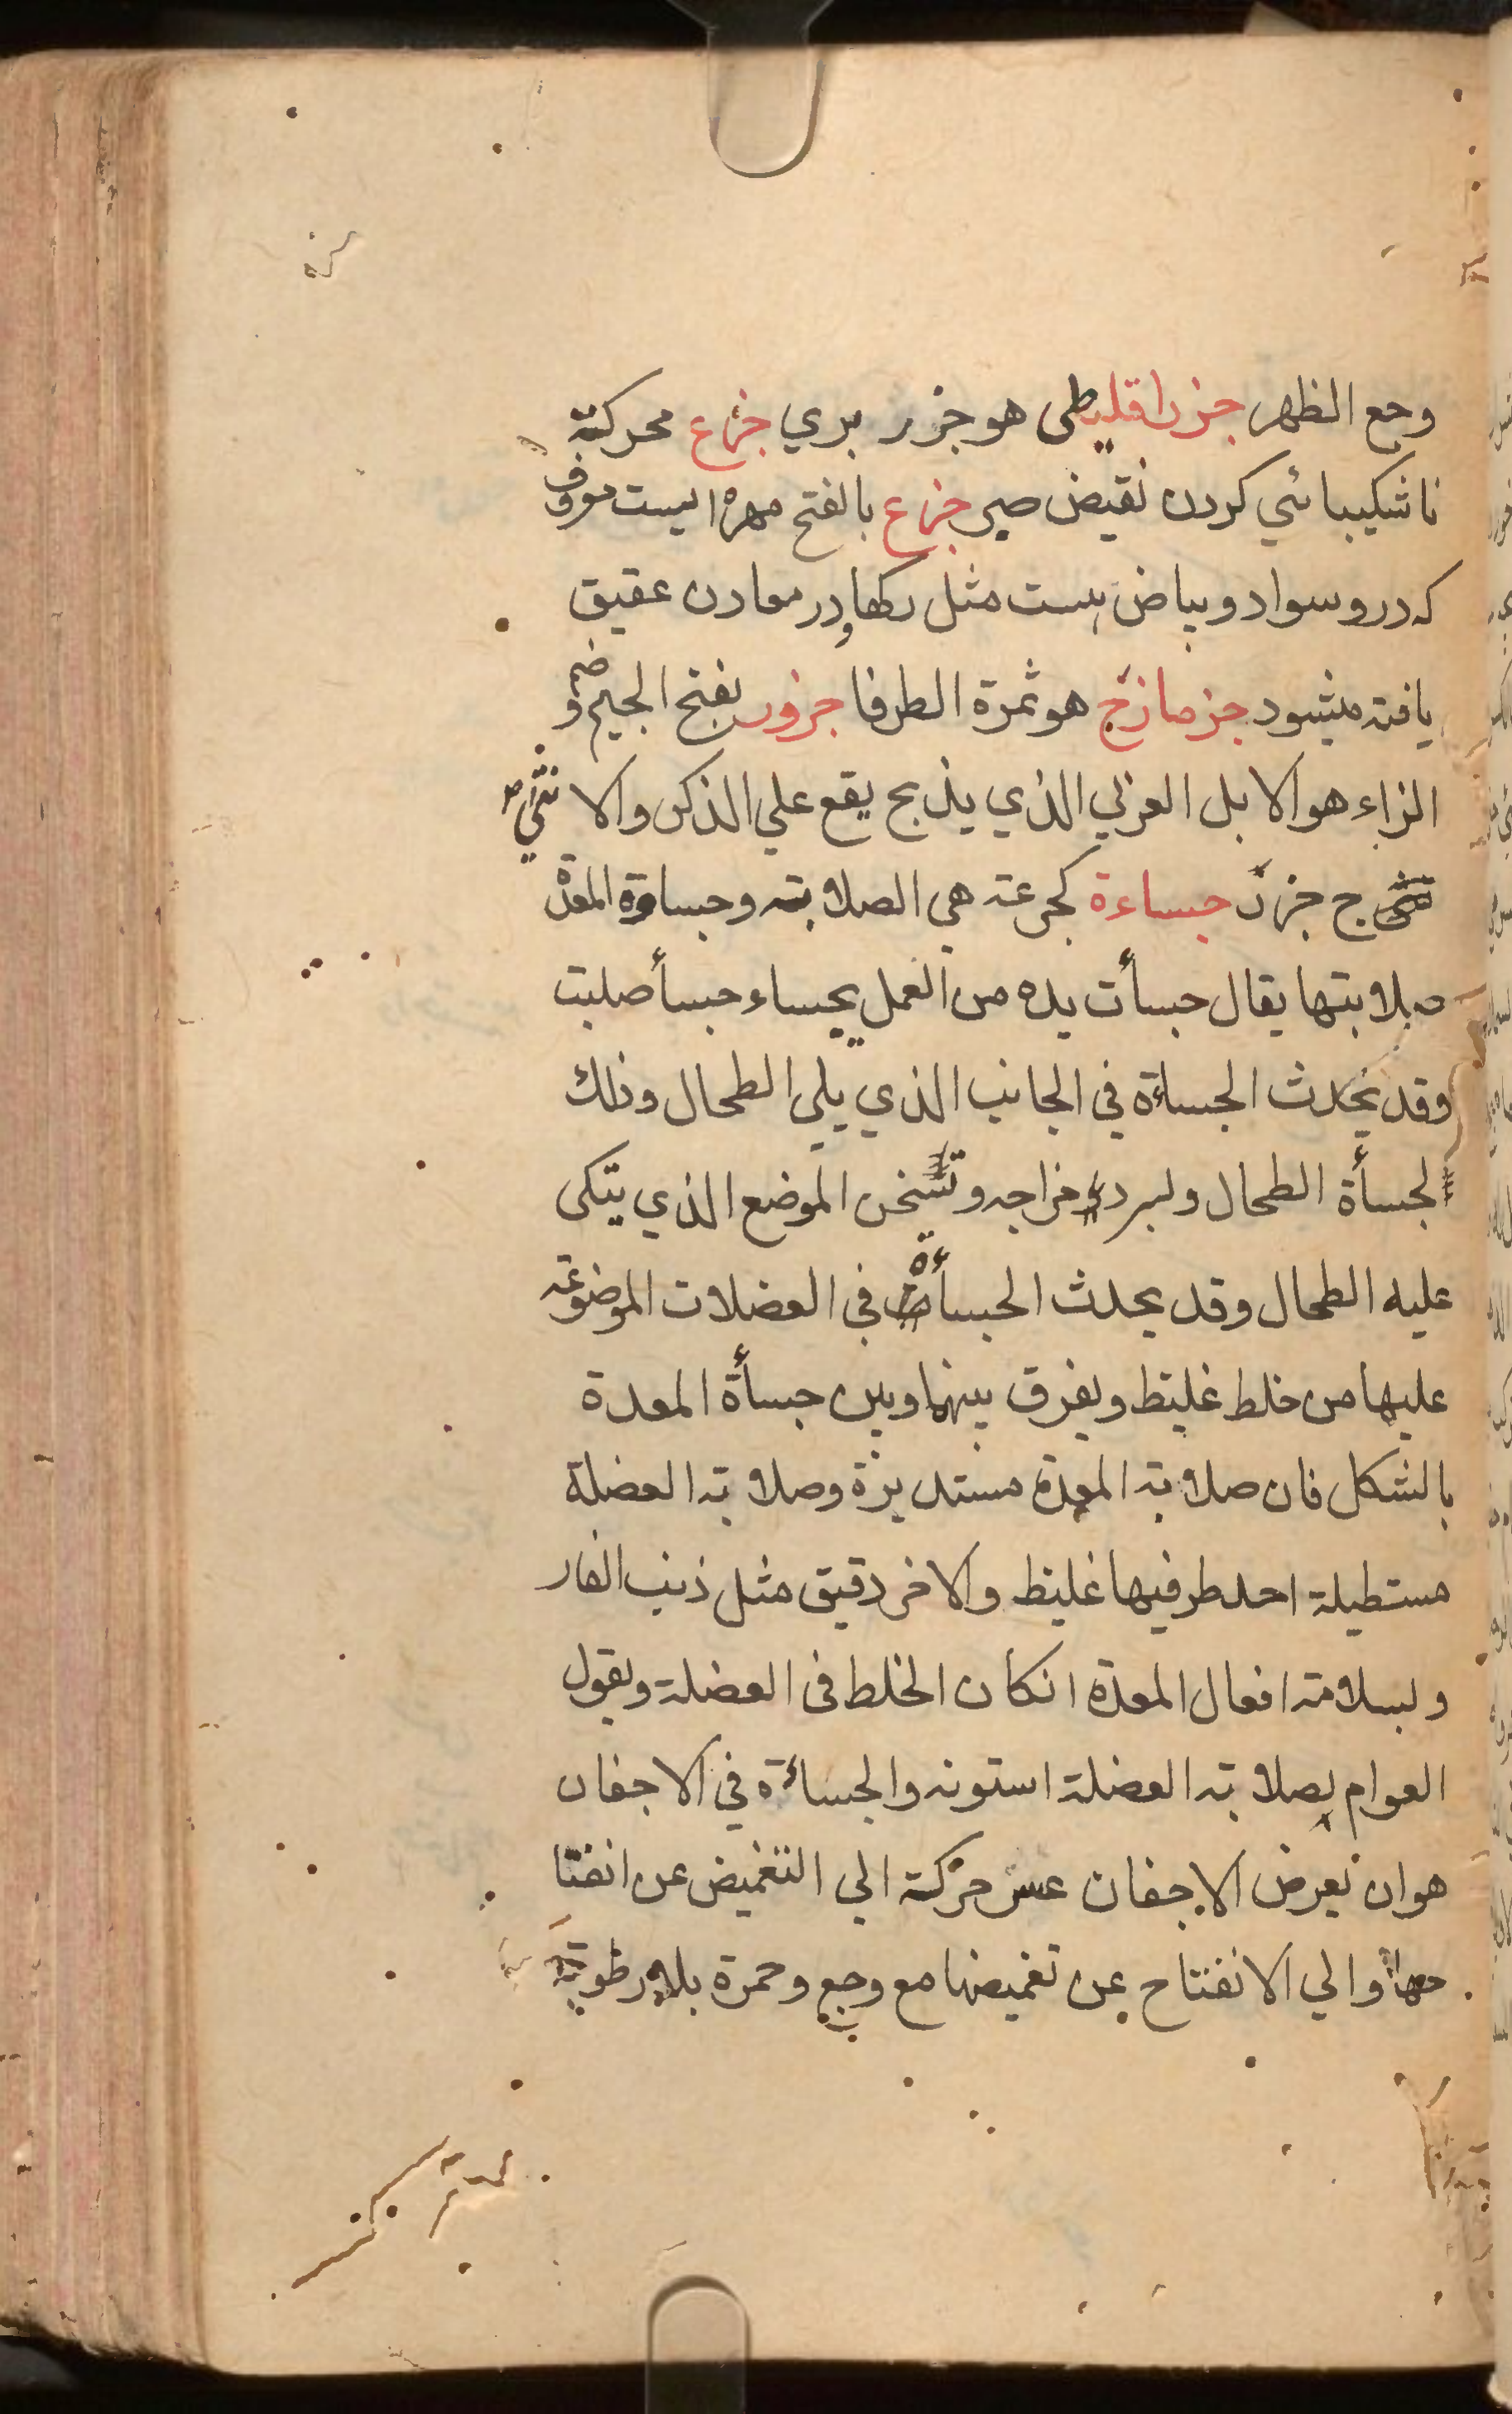 وجع الظهر جزر اقليطى هو جزر بري جزع محركة
ناشكيبائي كردن نقيض صبر جزع بالفتح مهره ايست معروف
كه درو سواد و بياض هست مثل رگها و در معادن عقيق
يافته ميشود جزمازج هو ثمرة الطرفا جزور بفتح الجيم و ضم
الزاء هو الابل العزلي الذي يذبح يقع علي الذكر والانثي
ج جزر جساءة كجرعة هي الصلابة وجساوة المعدة
صلابتها يقال جسأت يده من العمل يجساء جسأ صلبت
وقد يحدث الجساءة في الجانب الذي يلي الطحال وذلك
لجسأة الطحال ولبرد مزاجه وتسخن الموضع الذي يتكى
عليه الطحال وقد يحدث الجسأة في العضلات الموضوعة
عليها من خلط غليظ ويفرق بينها وبين جسأة المعدة
بالشكل فان صلابة المعدة مستديرة وصلابة العضلة
مستطيلة احد طرفيها غليظ والاخر دقيق مثل ذنب الفار
ولسلامة افعال المعدة انكان الخلط فى العضلة ويقول
العوام لصلابة العضلة استونه والجساءة في الاجفان
هو ان يعرض الاجفان عسر حركة الي التغميض عن انفتا
حها والي الانفتاح عن تغميضها مع وجع وحمرة بلا رطوبة